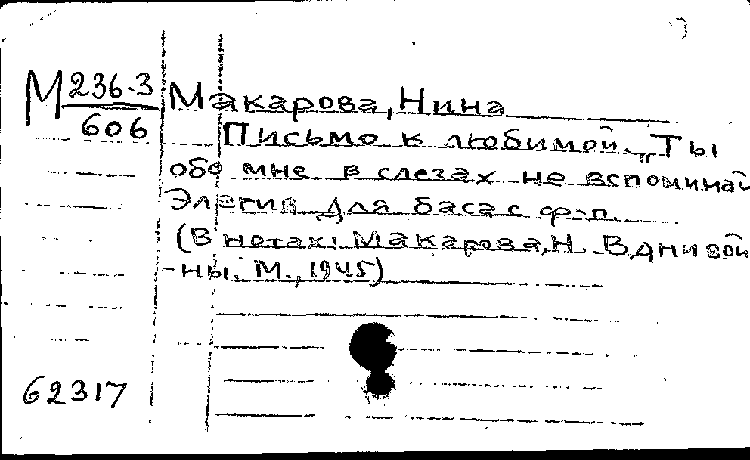 М 236.3
606
Макарова, Нина
Письмо к любимой. „Ты
обо мне в слезах не вспоминай
Элегия для баса с ф-п.
(В нотах: Макарова, Н. В дни вой
-ны. М., 1945)
62317